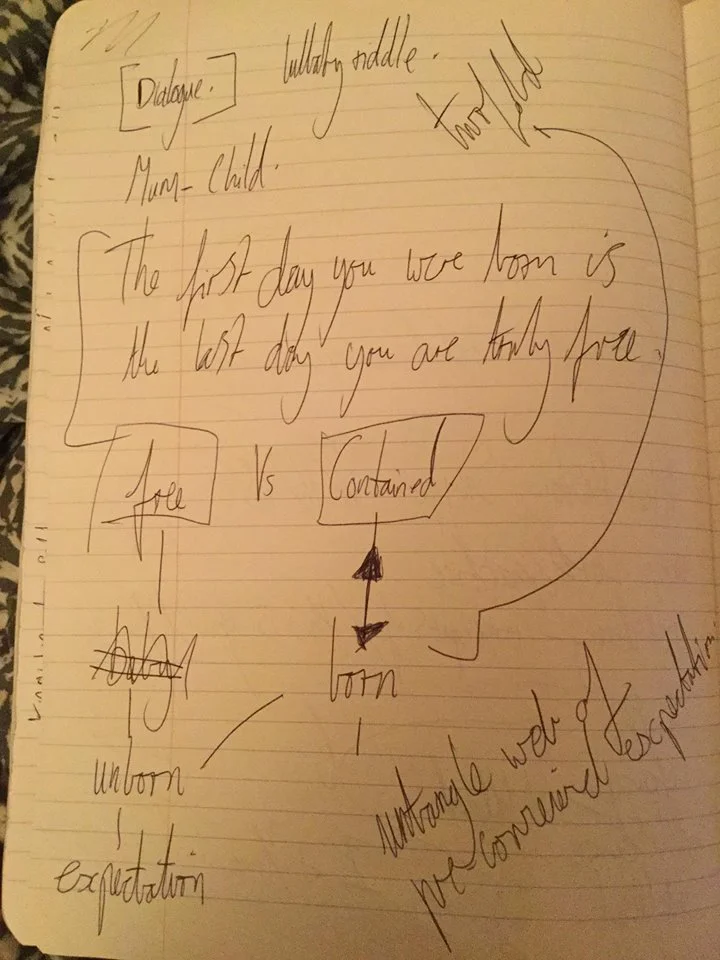 [Dialogue.] lullaby riddle.
twofold
Mum - Child.
The first day you were born is
the last day you are truly free.
free Vs Contained
baby born
unborn
expectation
untangle web of
pre-conceived expectation